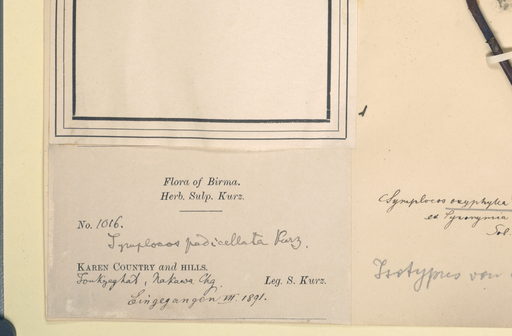 Flora of Birma.
Herb. Sulp. Kurz.
No. 1016.
Symplocos pedicellata Kurz.
KAREN COUNTRY and HILLS.
Leg. S. Kurz.
Eingegangen VII. 1891.
Symplocos oxyphylla
Isotypus von